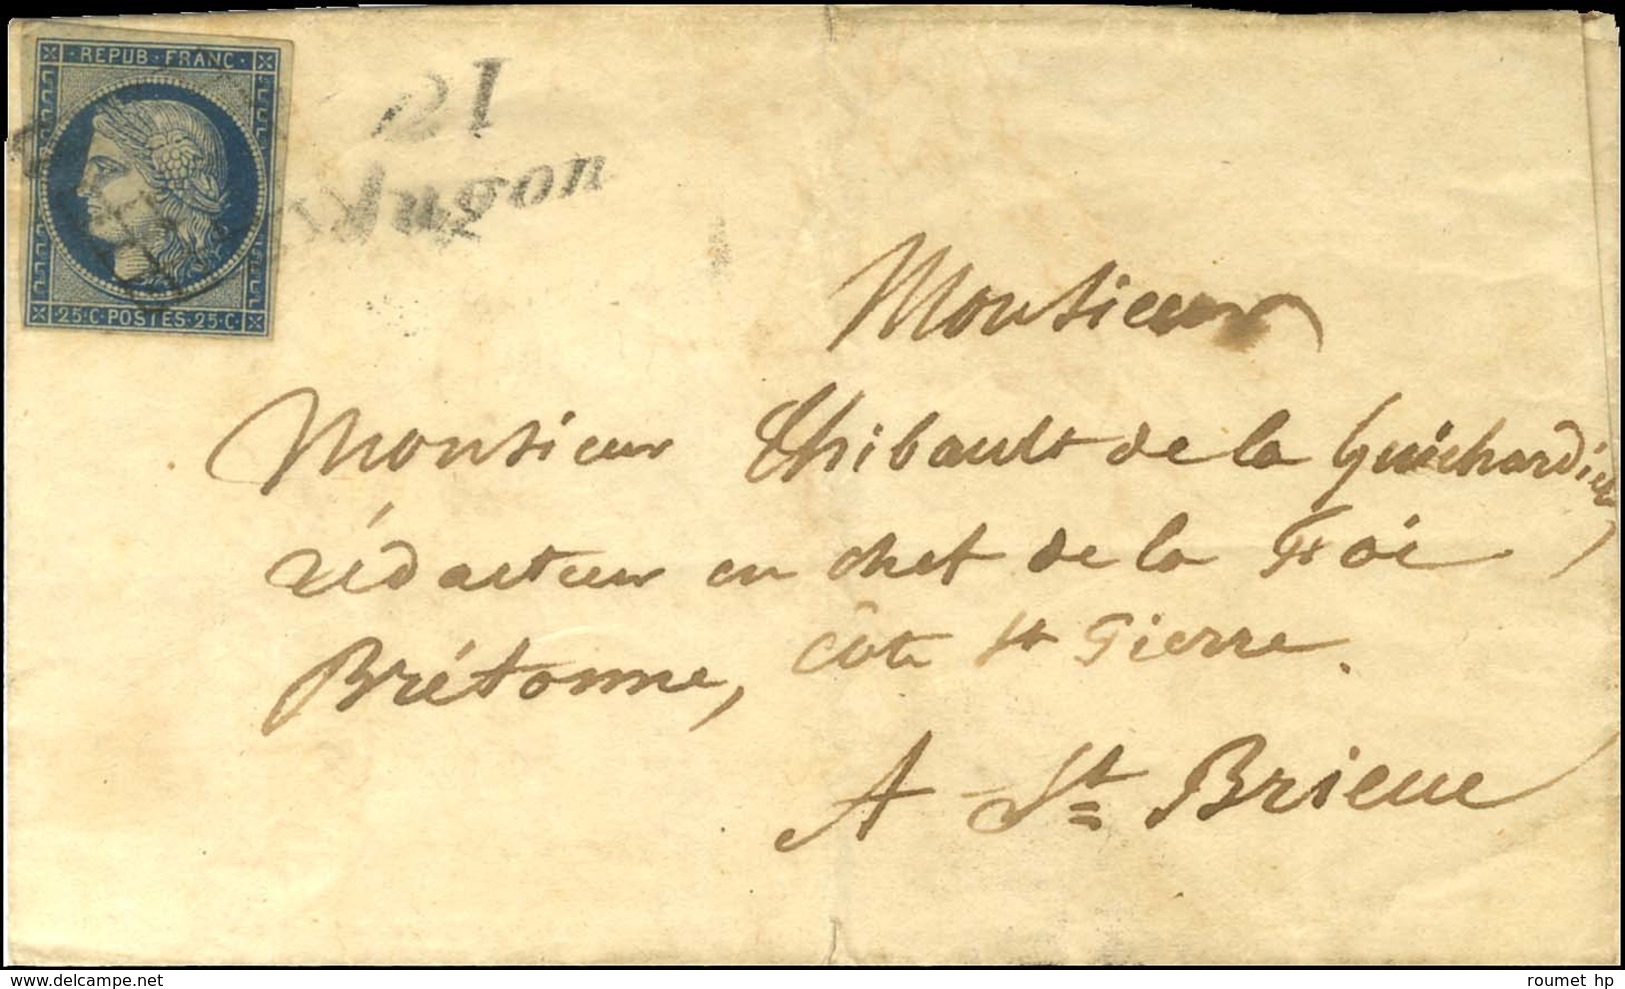 REPUB · FRANC ·
· 25 · C · POSTES · 25 · C ·
21
Jugon
Monsieur
Monsieur Thibault de la Guichardière,
rédacteur en chef de la Foi
Brétonne, côte St Pierre.
A St Brieuc
roumet hp